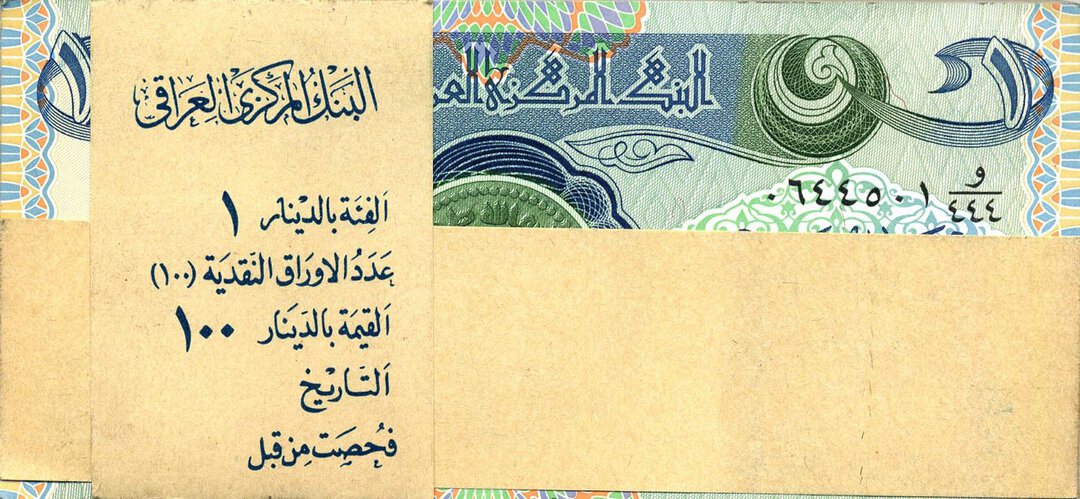 البنك المركزي العراقي
الفئة بالدينار ١
عدد الاوراق النقدية (١٠٠)
القيمة بالدينار ١٠٠
التاريخ
فحصت من قبل
البنك المركزي العر
١
٠٦٤٤٥٠١
و
٤٤٤